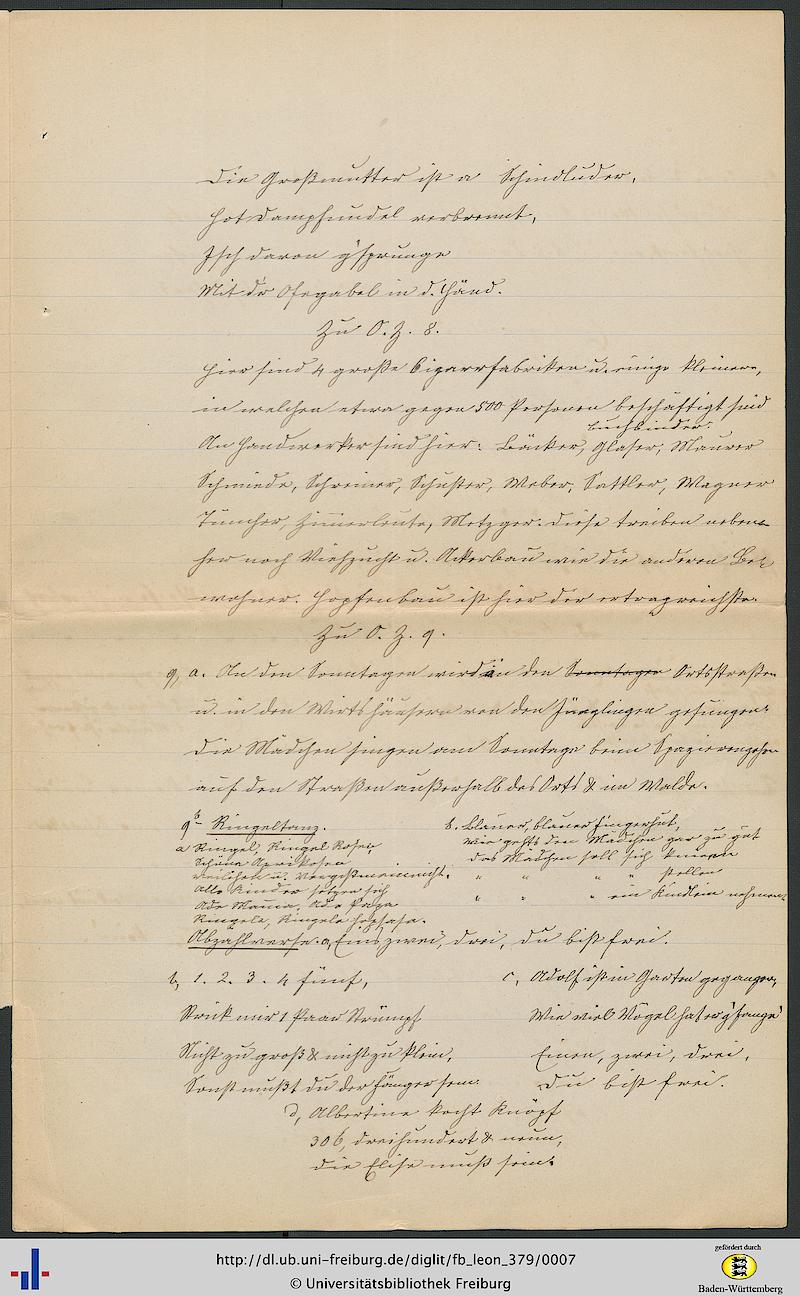 Die Großmutter ist a Schindluder,
Hot Dampfnudel verbrennt,
Isch davon g'sprunge
Mit d'r Ofegabel in d. Händ.
Zu O. Z. 8.
Hier sind 4 große Cigarrfabriken u. einige kleinere,
in welchen etwa gegen 500 Personen beschäftigt sind
Buchbinder.
An Handwerker sind hier: Bäcker, Glaser, Maurer
Schmiede, Schreiner, Schuster, Weber, Sattler, Wagner
Tüncher, Zimerleute, Metzger. Diese treiben neben
her noch Viehzucht u. Ackerbau wie die anderen Be-
wohner. Hopfenbau ist hier der ertragreichste.
Zu O. Z. 9.
9, a. An den Sonntagen wird in den Sonntagen Ortsstraßen
u. in den Wirtshäusern von den Jünglingen gesungen.
Die Mädchen singen am Sonntage beim Spazierengehen
auf den Straßen außerhalb des Orts & im Walde.
9b Ringeltanz.
a Ringel, Ringel Rosen,
Schöne Aprikosen
Veilchen u. Vergißmeinnicht,
Alle Kinder setzen sich
Ade Mama, Ade Papa
Ringele, Ringele hopsasa.
b. Blauer, blauer Fingerhut,
wie gehts den Mädchen gar zu gut
das Mädchen soll sich knieen
" " " " stellen
" " " ein Kindlein nehmen.
Abzahlverse. a, Eins zwei, drei, du bist frei.
b, 1. 2. 3. 4 fünf,
Strick mir 1 Paar Strümpf
Nicht zu groß & nicht zu klein,
Sonst mußt du der Fänger sein.
c, Adolf ist in Garten gegangen,
Wie viel Vögel hat er g'fange
Einen, zwei, drei,
Du bist frei.
d, Albertine kocht Knöpf
306, dreihundert & neun,
die Elise muß sein.
http://dl.ub.uni-freiburg.de/diglit/fb_leon_379/0007
© Universitätsbibliothek Freiburg
gefördert durch
Baden-Württemberg